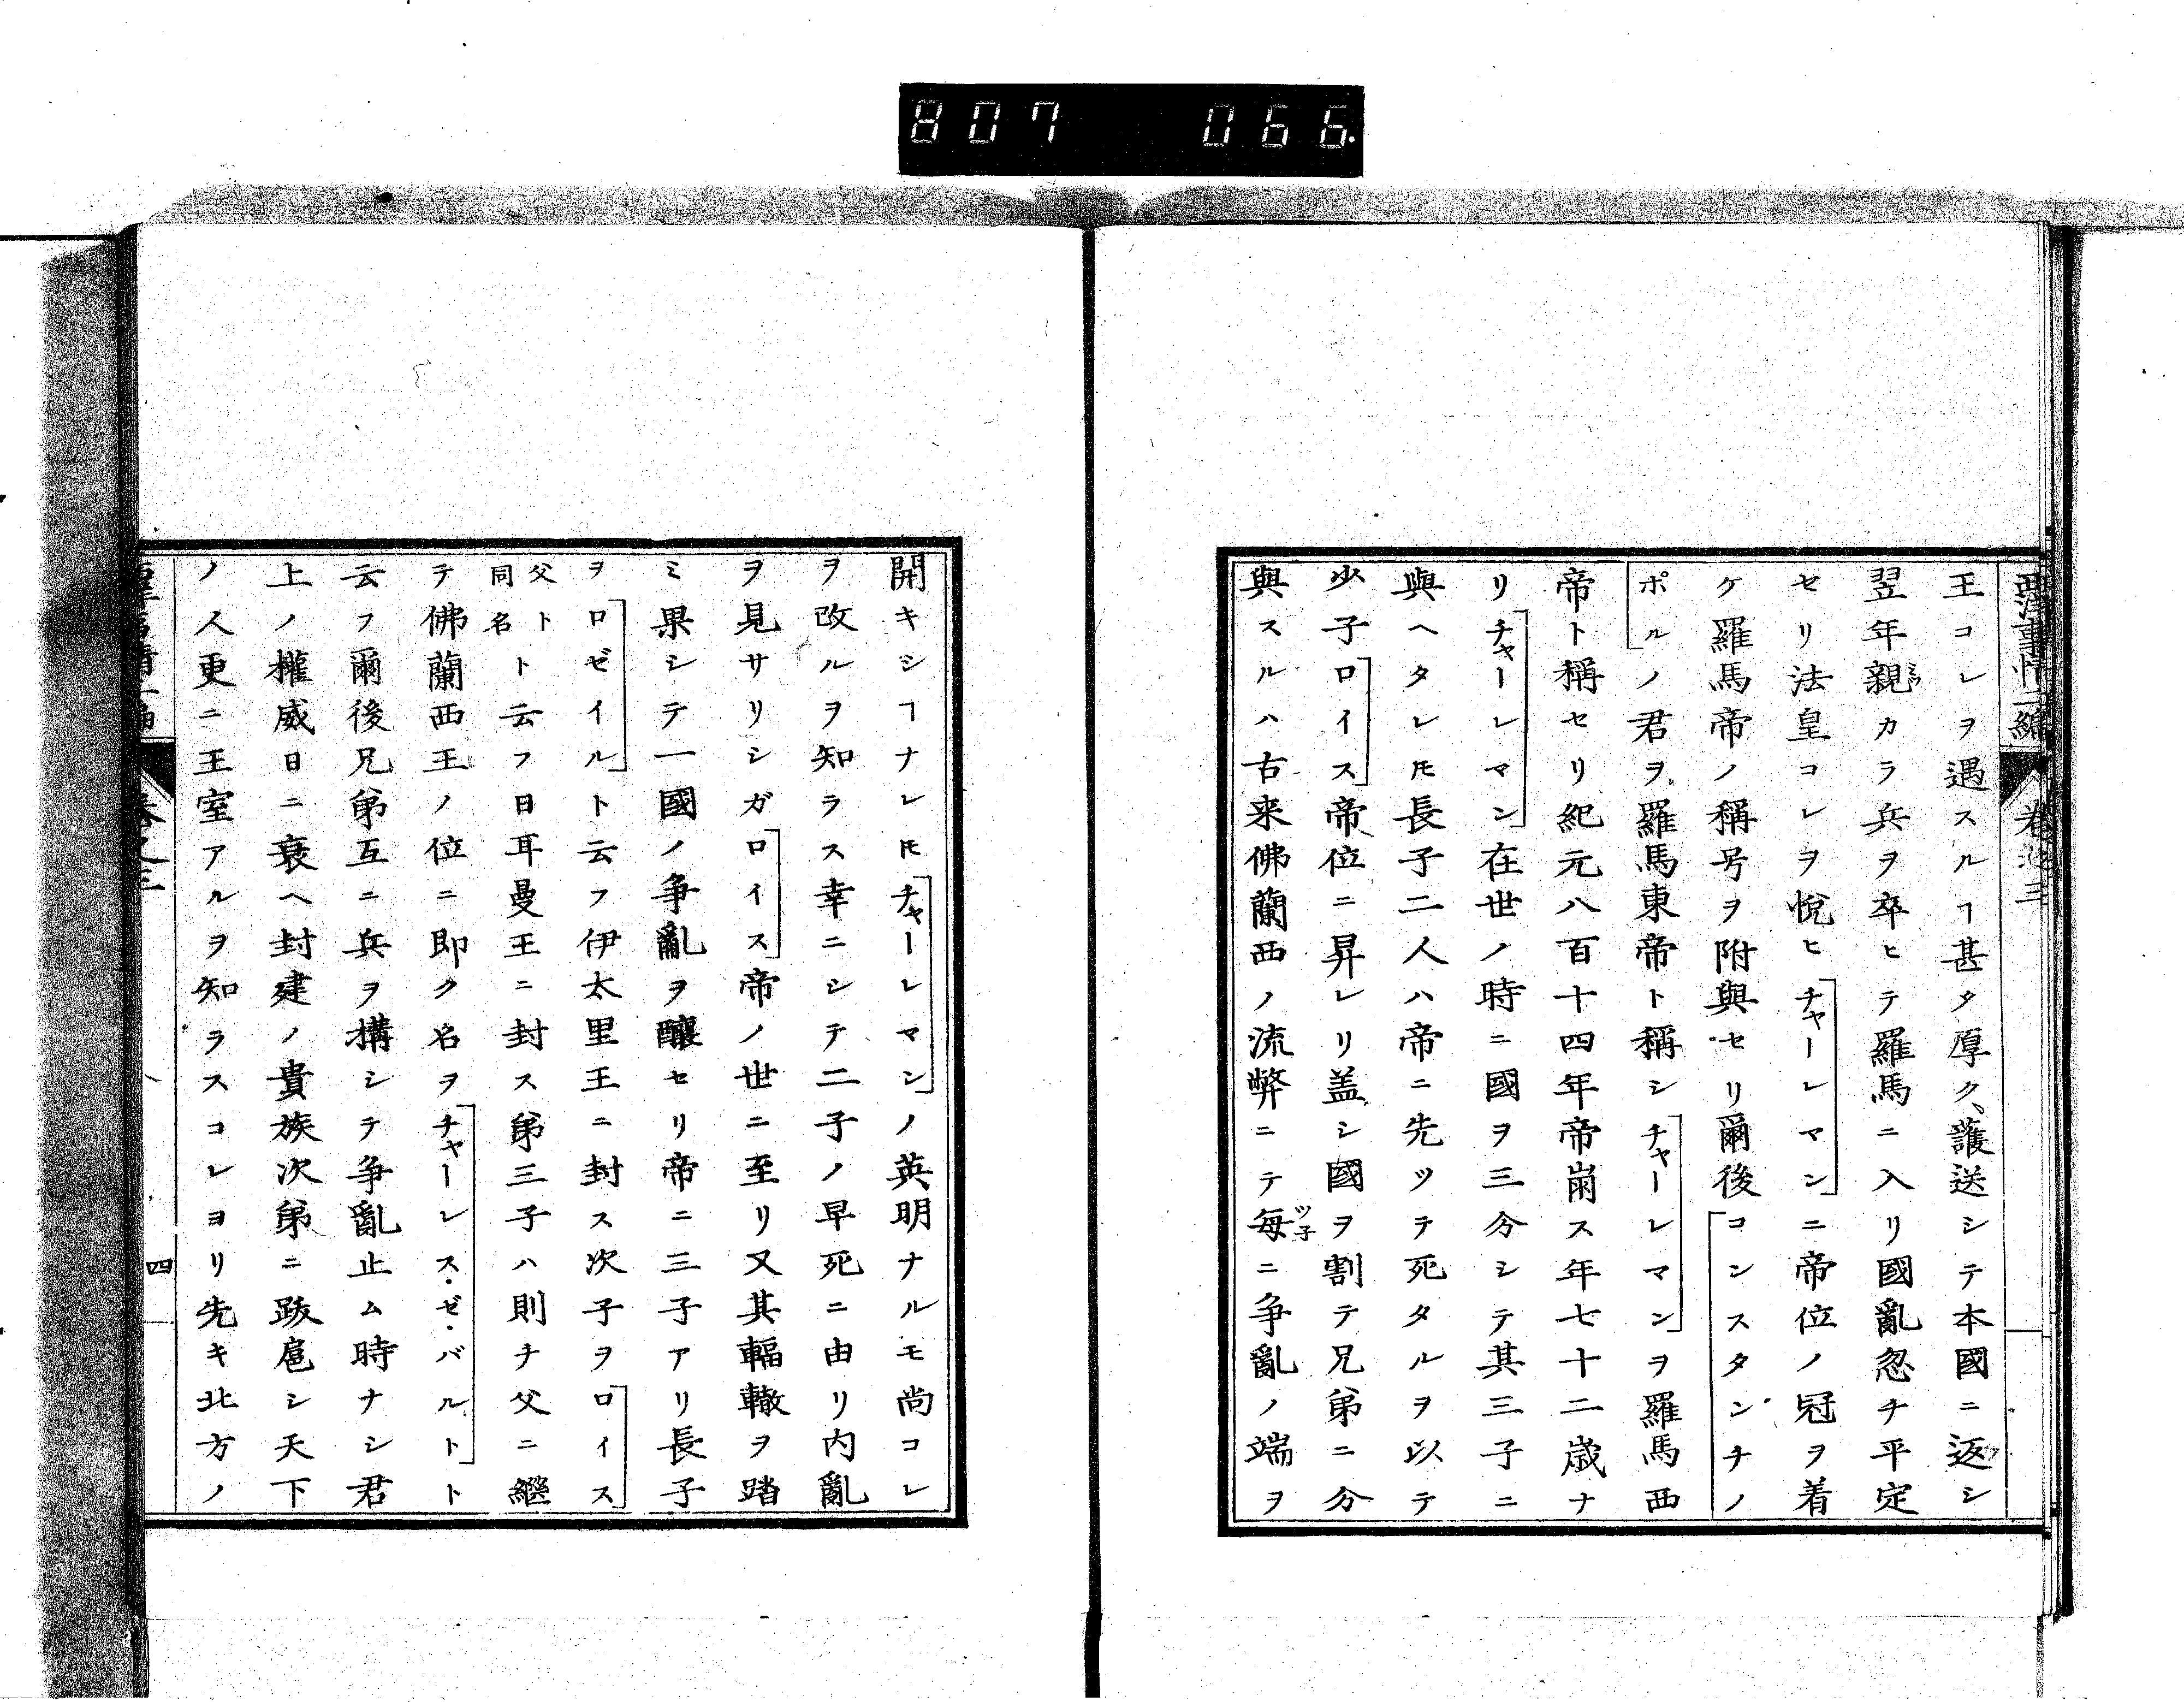 807 066
西洋事情二編 卷之三
王コレヲ遇スルヿ甚タ厚ク、護送シテ本國ニ返シ
翌年親カラ兵ヲ卒ヒテ羅馬ニ入リ國亂忽チ平定
セリ法皇コレヲ悅ヒチャーレマンニ帝位ノ冠ヲ着
ケ羅馬帝ノ稱号ヲ附與セリ爾後コンスタンチノ
ポルノ君ヲ羅馬東帝ト稱シチャーレマンヲ羅馬西
帝ト稱セリ紀元八百十四年帝崩ス年七十二歳ナ
リチャーレマン在世ノ時ニ國ヲ三分シテ其三子ニ
與ヘタレ𪜈長子二人ハ帝ニ先ツテ死タルヲ以テ
少子ロイス帝位ニ昇レリ盖シ國ヲ割テ兄弟ニ分
與スルハ古来佛蘭西ノ流弊ニテ每ツ子ニ争亂ノ端ヲ
開キシヿナレ𪜈チャーレマンノ英明ナルモ尚コレ
ヲ改ルヲ知ラス幸ニシテ二子ノ早死ニ由リ内亂
ヲ見サリシガロイス帝ノ世ニ至リ又其輻轍ヲ踏
ミ果シテ一國ノ争亂ヲ釀セリ帝ニ三子アリ長子
ヲロゼイルト云フ伊太里王ニ封ス次子ヲロイス
父ト同名ト云フ日耳曼王ニ封ス第三子ハ則チ父ニ繼
テ佛蘭西王ノ位ニ即ク名ヲチャーレス・ゼ・バルトト
云フ爾後兄弟互ニ兵ヲ構シテ争亂止ム時ナシ君
上ノ權威日ニ衰ヘ封建ノ貴族次第ニ跋扈シ天下
ノ人更ニ王室アルヲ知ラスコレヨリ先キ北方ノ
四